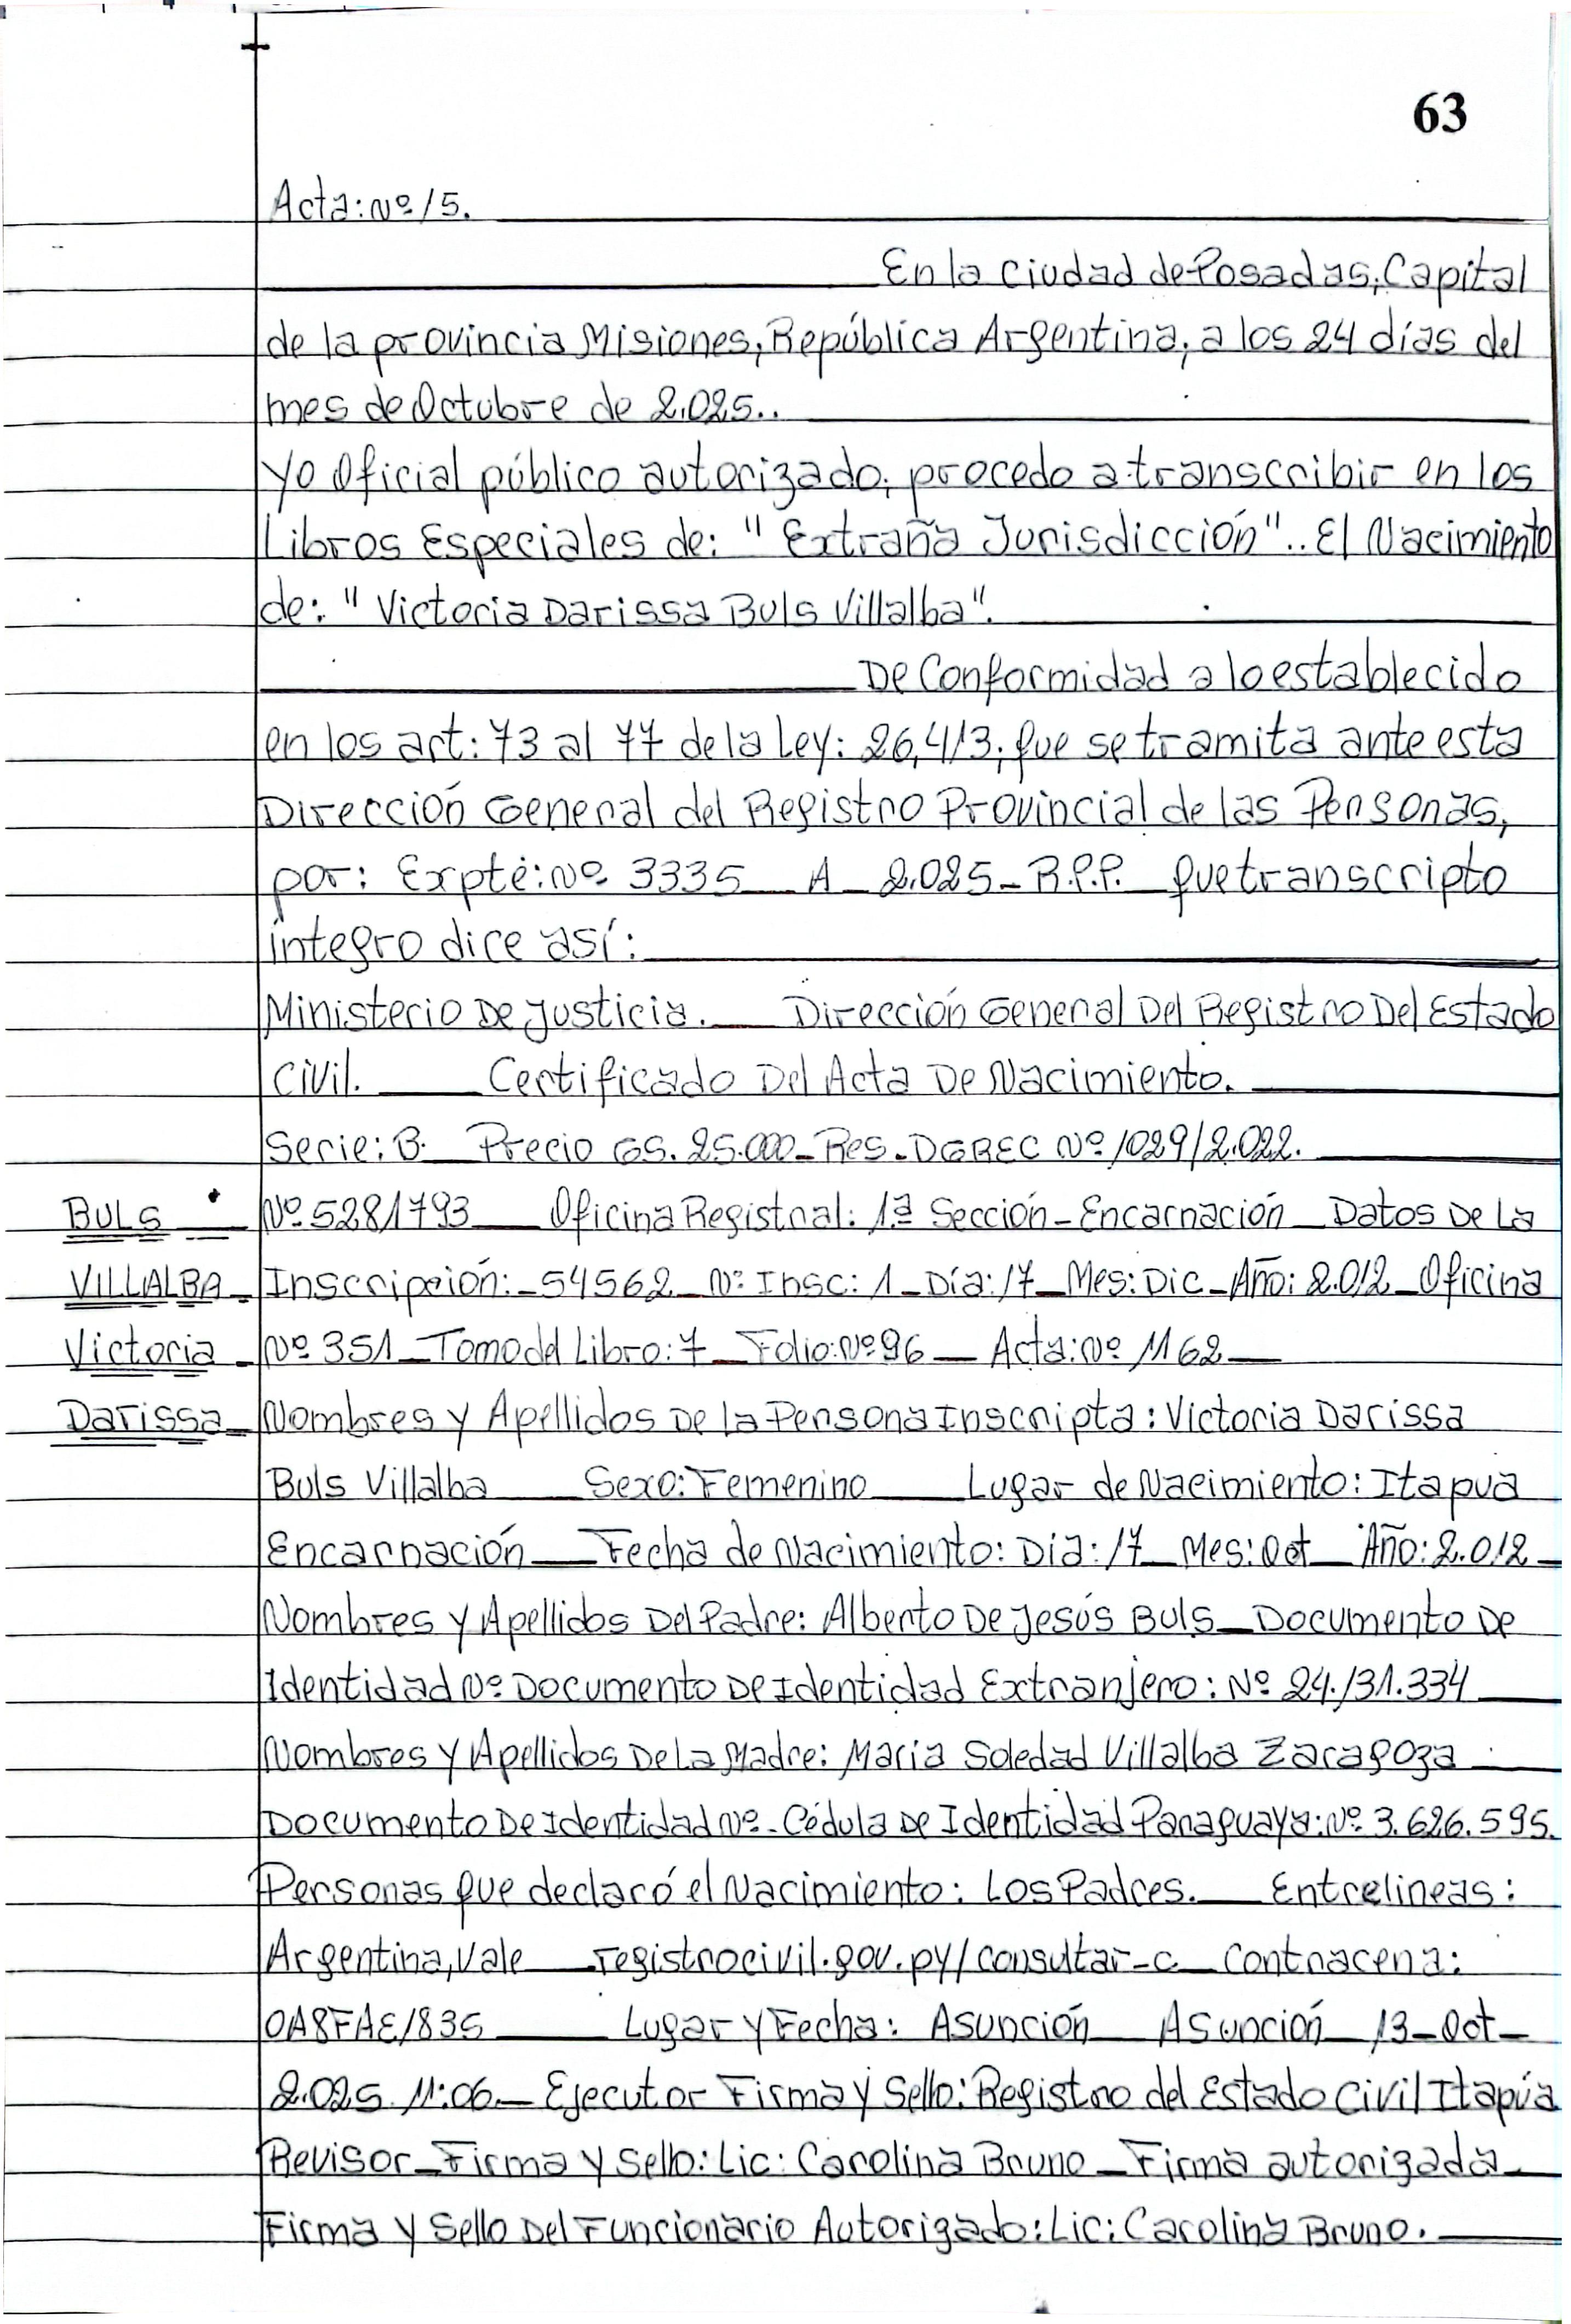 63
Acta: Nº 15.
En la Ciudad de Posadas, Capital
de la provincia Misiones, República Argentina, a los 24 días del
mes de Octubre de 2.025..
Yo Oficial público autorizado, procedo a transcribir en los
Libros Especiales de: "Extraña Jurisdicción".. El Nacimiento
de: "Victoria Darissa Buls Villalba".
De Conformidad a lo establecido
en los art: 73 al 77 de la Ley: 26,413, que se tramita ante esta
Dirección General del Registro Provincial de las Personas,
por: Expte: Nº 3335 _ A _ 2.025 _ R.P.P. _ que transcripto
íntegro dice así:
Ministerio De Justicia. _ Dirección General Del Registro Del Estado
Civil. _ Certificado Del Acta De Nacimiento.
Serie: B. Precio GS. 25.000 _ Res. DGREC Nº 1029/2.022.
BULS Nº 5281793 _ Oficina Registral: 1ª Sección - Encarnación _ Datos De La
VILLALBA _ Inscripción: _ 54562 _ Nº Insc: 1 _ Día: 17 _ Mes: Dic _ Año: 2.012 _ Oficina
Victoria _ Nº 351 _ Tomo del Libro: 7 _ Folio: Nº 96 _ Acta: Nº 1162 _
Darissa _ Nombres y Apellidos De la Persona Inscripta: Victoria Darissa
Buls Villalba _ Sexo: Femenino _ Lugar de Nacimiento: Itapua
Encarnación _ Fecha de Nacimiento: Día: 17 _ Mes: Oct _ Año: 2.012 _
Nombres y Apellidos Del Padre: Alberto De Jesús Buls _ Documento De
Identidad Nº Documento De Identidad Extranjero: Nº 24.131.334
Nombres y Apellidos De La Madre: Maria Soledad Villalba Zaragoza
Documento De Identidad Nº - Cédula De Identidad Paraguaya: Nº 3.626.595.
Personas que declaró el Nacimiento: Los Padres. _ Entrelineas:
Argentina, Vale _ registrocivil.gov.py/consultar-c _ Contracena:
0A8FAE1835 _ Lugar y Fecha: Asunción _ Asunción _ 13 - Oct -
2.025 11:06 _ Ejecutor Firma y Sello: Registro del Estado Civil Itapúa
Revisor _ Firma y Sello: Lic: Carolina Bruno _ Firma autorizada _
Firma y Sello Del Funcionario Autorizado: Lic: Carolina Bruno.